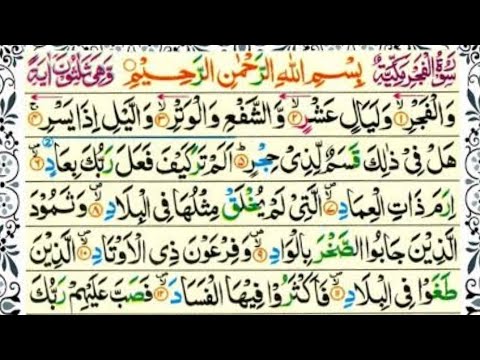 سُوْرَةُ الْفَجْرِ مَكِّيَّةٌ بِسْمِ اللّٰهِ الرَّحْمٰنِ الرَّحِيْمِ وَهِيَ ثَلٰثُوْنَ اٰيَةً
وَالْفَجْرِۙ‏﴿۱﴾ وَلَيَالٍ عَشْرٍۙ‏﴿۲﴾ وَّالشَّفْعِ وَالْوَتْرِۙ‏﴿۳﴾ وَالَّيْلِ اِذَا يَسْرِۚ‏﴿۴﴾
هَلْ فِىْ ذٰلِكَ قَسَمٌ لِّذِىْ حِجْرٍؕ‏﴿۵﴾ اَلَمْ تَرَ كَيْفَ فَعَلَ رَبُّكَ بِعَادٍۙ‏﴿۶﴾
اِرَمَ ذَاتِ الْعِمَادِۙ‏﴿۷﴾ الَّتِىْ لَمْ يُخْلَقْ مِثْلُهَا فِى الْبِلَادِۙ‏﴿۸﴾ وَثَمُوْدَ
الَّذِيْنَ جَابُوا الصَّخْرَ بِالْوَادِۙ‏﴿۹﴾ وَفِرْعَوْنَ ذِى الْاَوْتَادِۙ‏﴿۱۰﴾ الَّذِيْنَ
طَغَوْا فِى الْبِلَادِۙ‏﴿۱۱﴾ فَاَكْثَرُوْا فِيْهَا الْفَسَادَۙ‏﴿۱۲﴾ فَصَبَّ عَلَيْهِمْ رَبُّكَ